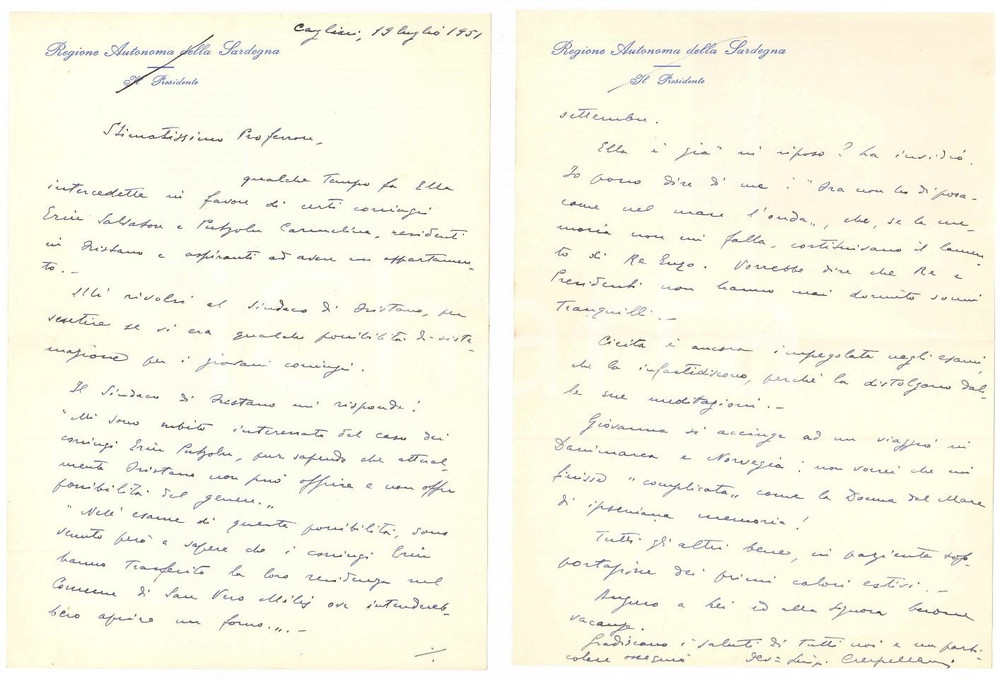 Cagliari, 19 luglio 1951
Regione Autonoma della Sardegna
Il Presidente
Stimatissimo Professore,
qualche tempo fa Ella
intercedette in favore di certi coniugi
Erin Salvatore e Putzolu Carmelina, residenti
in Oristano e aspiranti ad avere un appartamen-
to. -
Mi rivolsi al Sindaco di Oristano, per
sentire se vi era qualche possibilità di siste-
mazione per i giovani coniugi.
Il Sindaco di Oristano mi risponde:
"Mi sono subito interessato del caso dei
coniugi Erin Putzolu, pur sapendo che attual-
mente Oristano non può offrire e non offre
possibilità del genere."
"Nell'esame di queste possibilità, sono
venuto però a sapere che i coniugi Erin
hanno trasferito la loro residenza nel
Comune di San Vero Milis ove intendereb-
bero aprire un forno...". -
./.
Regione Autonoma della Sardegna
Il Presidente
settembre.
Ella è già in riposo? La invidio.
Io posso dire di me: "Ora non ho di posa-
come nel mare l'onda", che, se la me-
moria non mi falla, costituivano il lamen-
to di Re Enzo. Vorrebbe dire che Re e
Presidenti non hanno mai dormito sonni
tranquilli. -
Cicita è ancora impegolata negli esami,
che la infastidiscono, perché la distolgono dal-
le sue meditazioni. -
Giovanna si accinge ad un viaggio in
Danimarca e Norvegia: non vorrei che mi
finisse "complicata" come la Donna del Mare
di ipseniana memoria!
Tutti gli altri bene, in paziente sop-
portazione dei primi calori estivi. -
Auguro a Lei ed alla Signora buone
vacanze.
Gradiscano i saluti di tutti noi e un parti-
colare ossequio Dev. Luigi Crespellani